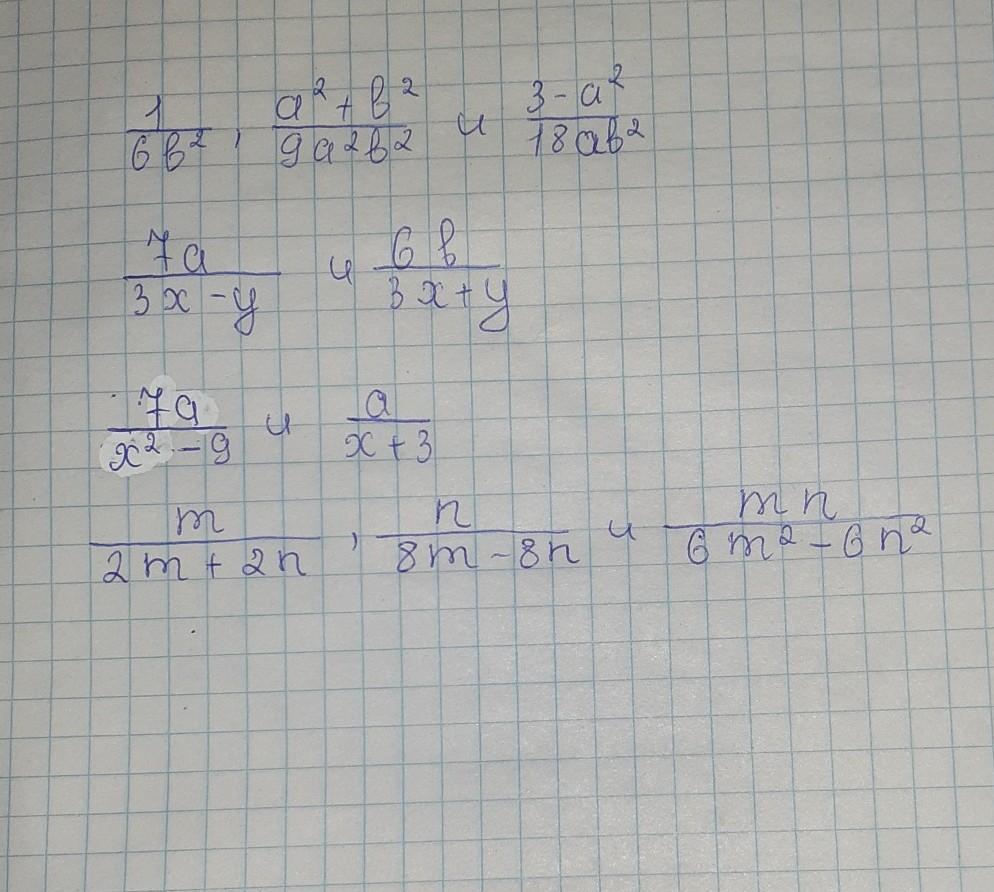 1/6b², a²+b²/9a²b² и 3-a²/18ab²
7a/3x-y и 6b/3x+y
7a/x²-9 и a/x+3
m/2m+2n, n/8m-8n и mn/6m²-6n²